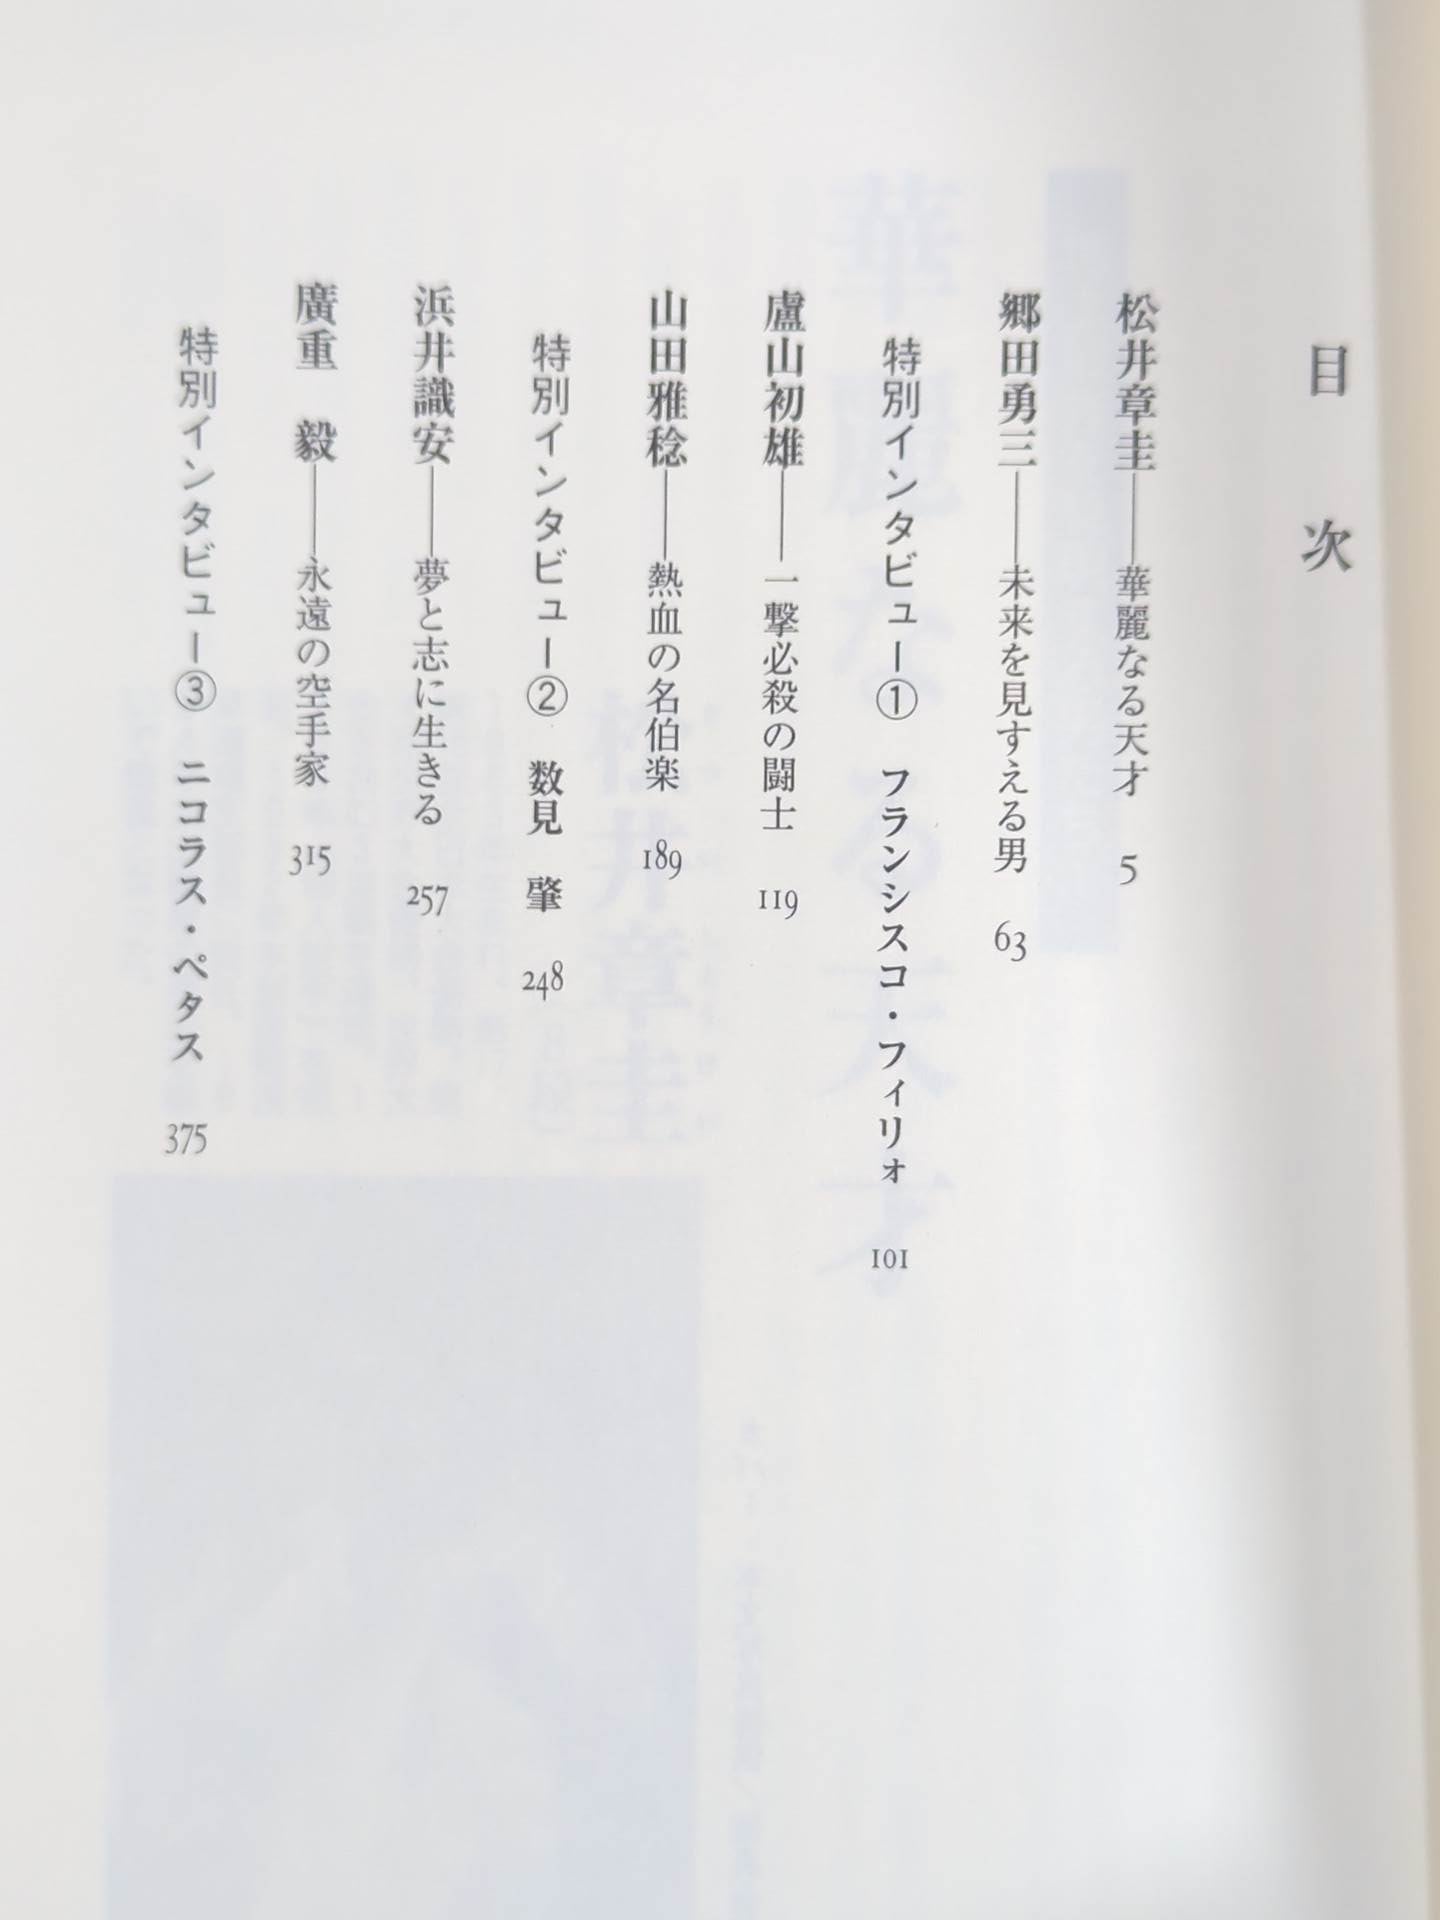 目 次
松井章圭――華麗なる天才 5
郷田勇三――未来を見すえる男 63
特別インタビュー① フランシスコ・フィリォ 101
盧山初雄――一撃必殺の闘士 119
山田雅稔――熱血の名伯楽 189
特別インタビュー② 数見 肇 248
浜井識安――夢と志に生きる 257
廣重 毅――永遠の空手家 315
特別インタビュー③ ニコラス・ペタス 375
華麗なる天才
松井章圭